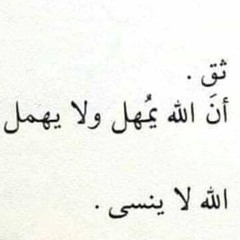 ثق .
أنَ الله يمُهل ولا يهمل
الله لا ينسى .